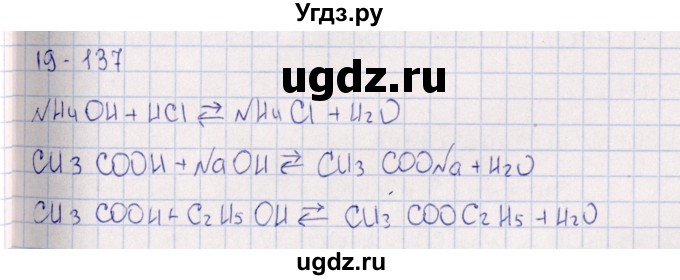 Угдз.ру
19-137
ugdz.ru
NH4OH + HCl ⇄ NH4Cl + H2O
CH3 COOH + NaOH ⇄ CH3 COONa + H2O
CH3 COOH + C2H5OH ⇄ CH3 COOC2H5 + H2O
ugdz.ru